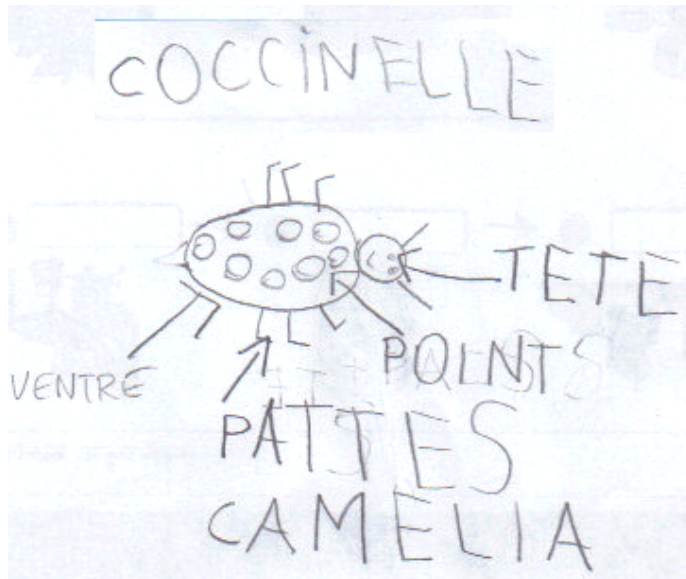 COCCINELLE
TETE
POINTS
VENTRE
PATTES
CAMELIA